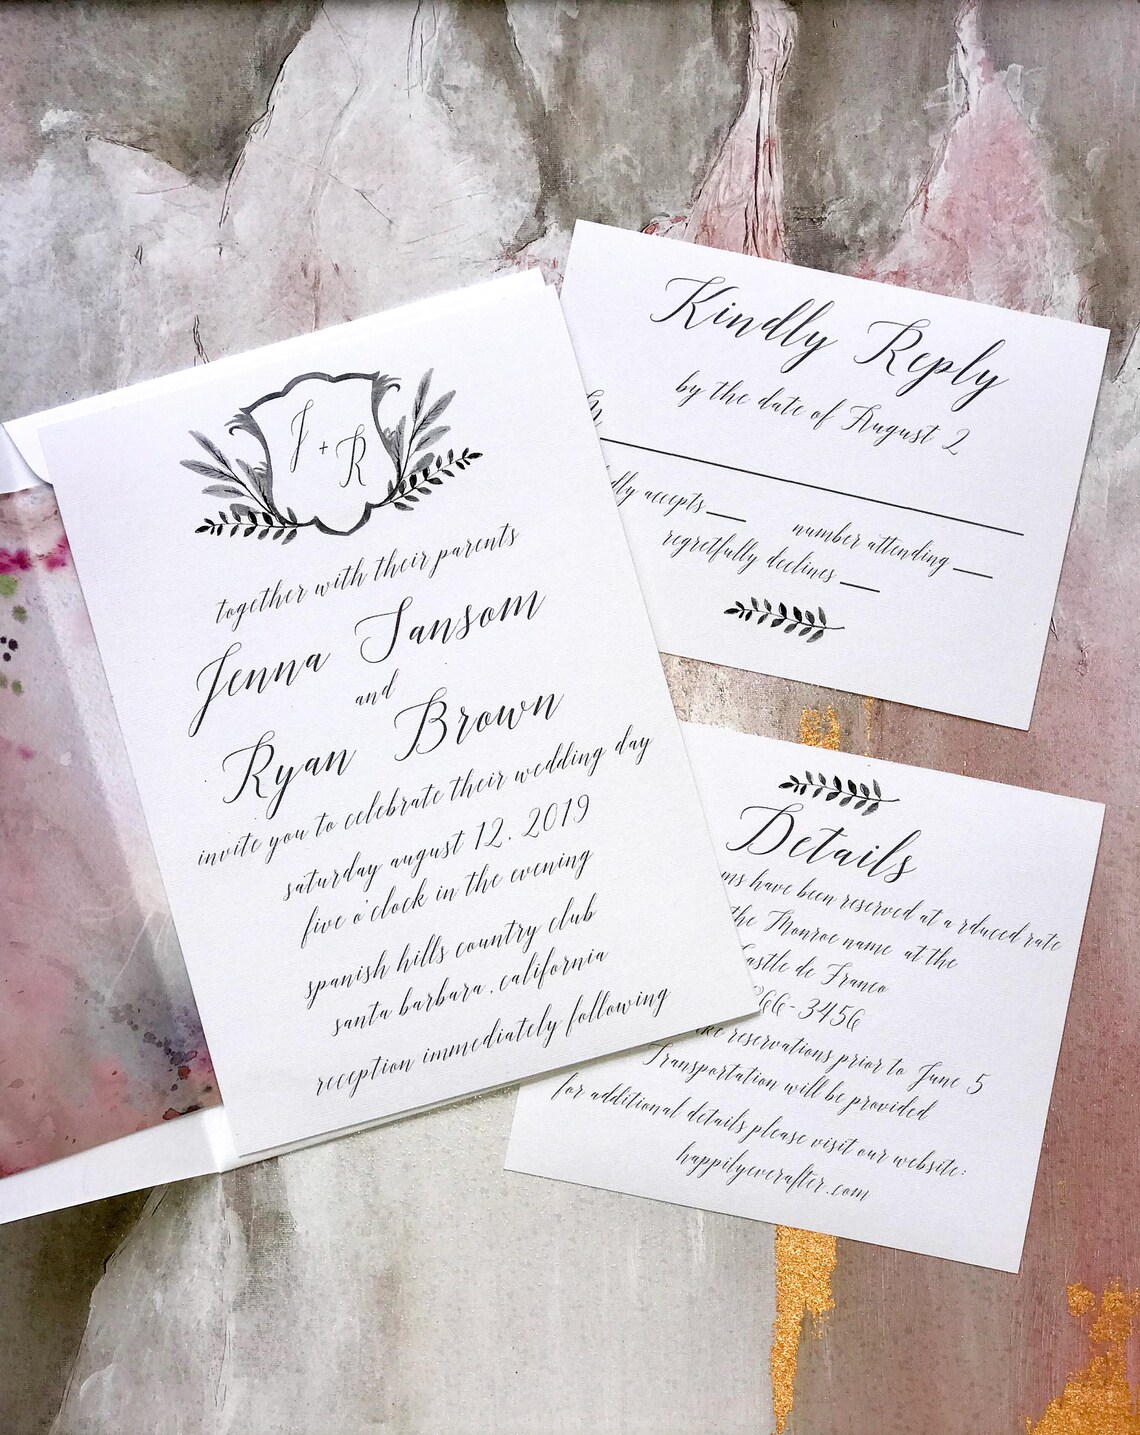 J + R
together with their parents
Jenna Jansom
and
Ryan Brown
invite you to celebrate their wedding day
saturday august 12, 2019
five o'clock in the evening
spanish hills country club
santa barbara, california
reception immediately following
Kindly Reply
by the date of August 2
accepts
number attending
regretfully declines
Details
have been reserved at a rduced rate
the Monroe name at the
Castle de Franco
266-3456
reservations prior to June 5
Transportation will be provided
for additional details please visit our website:
happilyeverafter.com